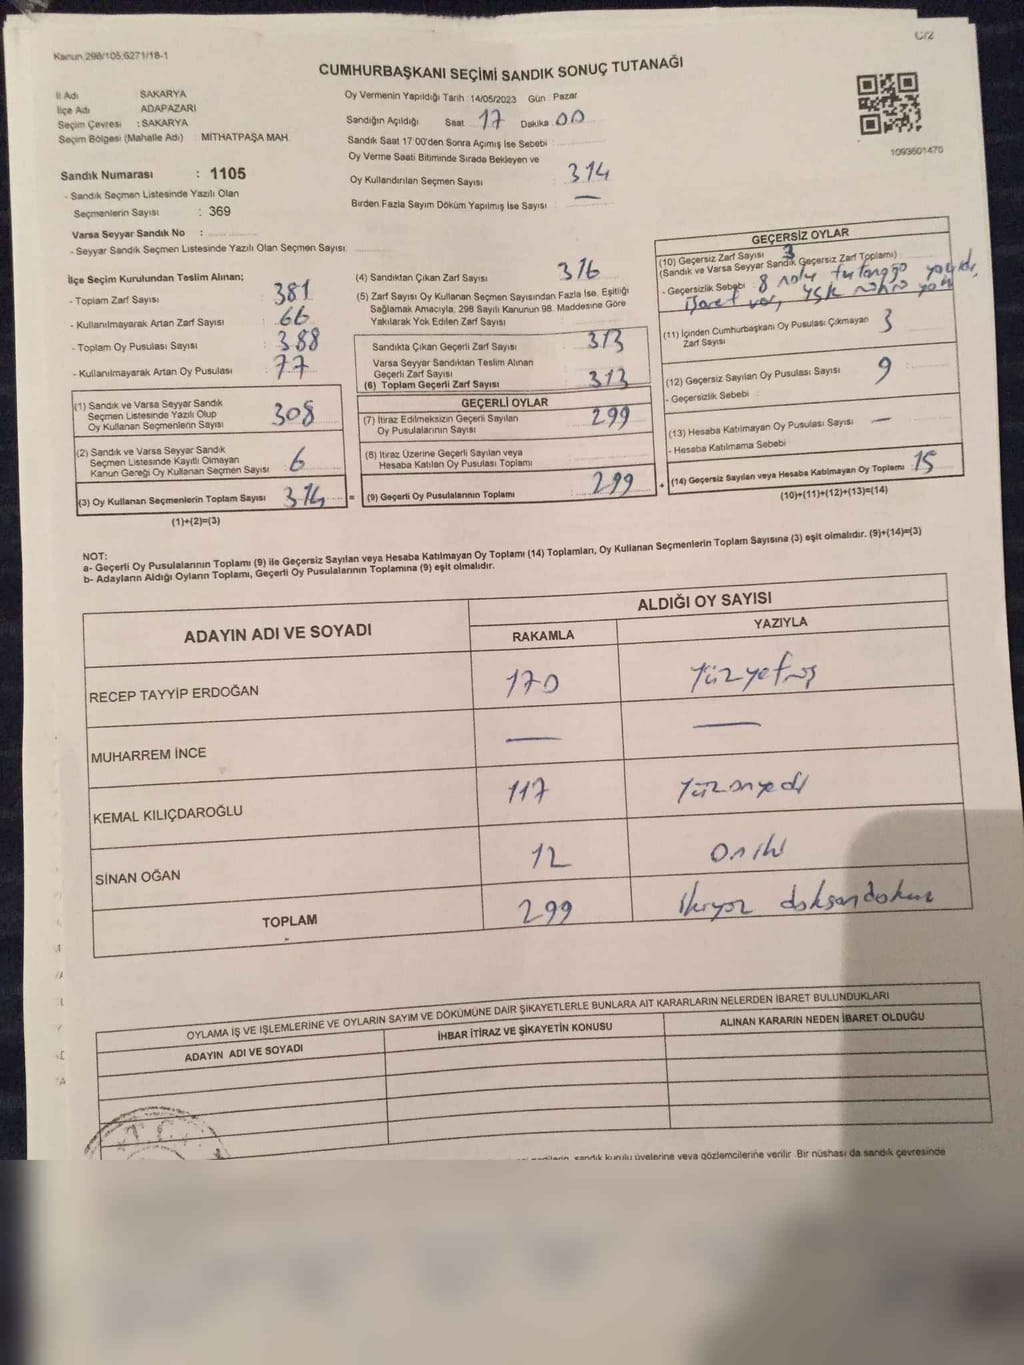 C/2
Kanun 298/105,6271/18-1
CUMHURBAŞKANI SEÇİMİ SANDIK SONUÇ TUTANAĞI
İl Adı SAKARYA
İlçe Adı ADAPAZARI
Seçim Çevresi : SAKARYA
Seçim Bölgesi (Mahalle Adı) MİTHATPAŞA MAH.
Sandık Numarası : 1105
- Sandık Seçmen Listesinde Yazılı Olan
Seçmenlerin Sayısı : 369
Varsa Seyyar Sandık No :
- Seyyar Sandık Seçmen Listesinde Yazılı Olan Seçmen Sayısı:
Oy Vermenin Yapıldığı Tarih :14/05/2023 Gün : Pazar
Sandığın Açıldığı Saat 17 Dakika 00
Sandık Saat 17:00'den Sonra Açımış İse Sebebi
Oy Verme Saati Bitiminde Sırada Bekleyen ve
Oy Kullandırılan Seçmen Sayısı 314
Birden Fazla Sayım Döküm Yapılmış İse Sayısı —
1093601470
İlçe Seçim Kurulundan Teslim Alınan;
- Toplam Zarf Sayısı : 381
- Kullanılmayarak Artan Zarf Sayısı : 66
- Toplam Oy Pusulası Sayısı : 388
- Kullanılmayarak Artan Oy Pusulası : 77
(1) Sandık ve Varsa Seyyar Sandık
Seçmen Listesinde Yazılı Olup
Oy Kullanan Seçmenlerin Sayısı 308
(2) Sandık ve Varsa Seyyar Sandık
Seçmen Listesinde Kayıtlı Olmayan
Kanun Gereği Oy Kullanan Seçmen Sayısı 6
(3) Oy Kullanan Seçmenlerin Toplam Sayısı 314 =
(1)+(2)=(3)
(4) Sandıktan Çıkan Zarf Sayısı 316
(5) Zarf Sayısı Oy Kullanan Seçmen Sayısından Fazla İse, Eşitliği
Sağlamak Amacıyla, 298 Sayılı Kanunun 98. Maddesine Göre
Yakılarak Yok Edilen Zarf Sayısı :
Sandıkta Çıkan Geçerli Zarf Sayısı : 313
Varsa Seyyar Sandıktan Teslim Alınan
Geçerli Zarf Sayısı
(6) Toplam Geçerli Zarf Sayısı : 313
GEÇERLİ OYLAR
(7) İtiraz Edilmeksizin Geçerli Sayılan
Oy Pusulalarının Sayısı : 299
(8) İtiraz Üzerine Geçerli Sayılan veya
Hesaba Katılan Oy Pusulası Toplamı
(9) Geçerli Oy Pusulalarının Toplamı : 299 +
GEÇERSİZ OYLAR
(10) Geçersiz Zarf Sayısı 3
(Sandık ve Varsa Seyyar Sandık Geçersiz Zarf Toplamı)
- Geçersizlik Sebebi : 8 nolu
işaret var, YSK yok
(11) İçinden Cumhurbaşkanı Oy Pusulası Çıkmayan
Zarf Sayısı 3
(12) Geçersiz Sayılan Oy Pusulası Sayısı 9
- Geçersizlik Sebebi :
(13) Hesaba Katılmayan Oy Pusulası Sayısı —
- Hesaba Katılmama Sebebi
(14) Geçersiz Sayılan veya Hesaba Katılmayan Oy Toplamı : 15
(10)+(11)+(12)+(13)=(14)
NOT:
a- Geçerli Oy Pusulalarının Toplamı (9) ile Geçersiz Sayılan veya Hesaba Katılmayan Oy Toplamı (14) Toplamları, Oy Kullanan Seçmenlerin Toplam Sayısına (3) eşit olmalıdır. (9)+(14)=(3)
b- Adayların Aldığı Oyların Toplamı, Geçerli Oy Pusulalarının Toplamına (9) eşit olmalıdır.
ADAYIN ADI VE SOYADI
ALDIĞI OY SAYISI
RAKAMLA YAZIYLA
RECEP TAYYİP ERDOĞAN 170 Yüzyetmiş
MUHARREM İNCE — —
KEMAL KILIÇDAROĞLU 117 Yüzonyedi
SİNAN OĞAN 12 Oniki
TOPLAM 299 ikiyüz doksandokuz
OYLAMA İŞ VE İŞLEMLERİNE VE OYLARIN SAYIM VE DÖKÜMÜNE DAİR ŞİKAYETLERLE BUNLARA AİT KARARLARIN NELERDEN İBARET BULUNDUKLARI
ADAYIN ADI VE SOYADI İHBAR İTİRAZ VE ŞİKAYETİN KONUSU ALINAN KARARIN NEDEN İBARET OLDUĞU
T.C.
sandık kurulu üyelerine veya gözlemcilerine verilir. Bir nüshası da sandık çevresinde